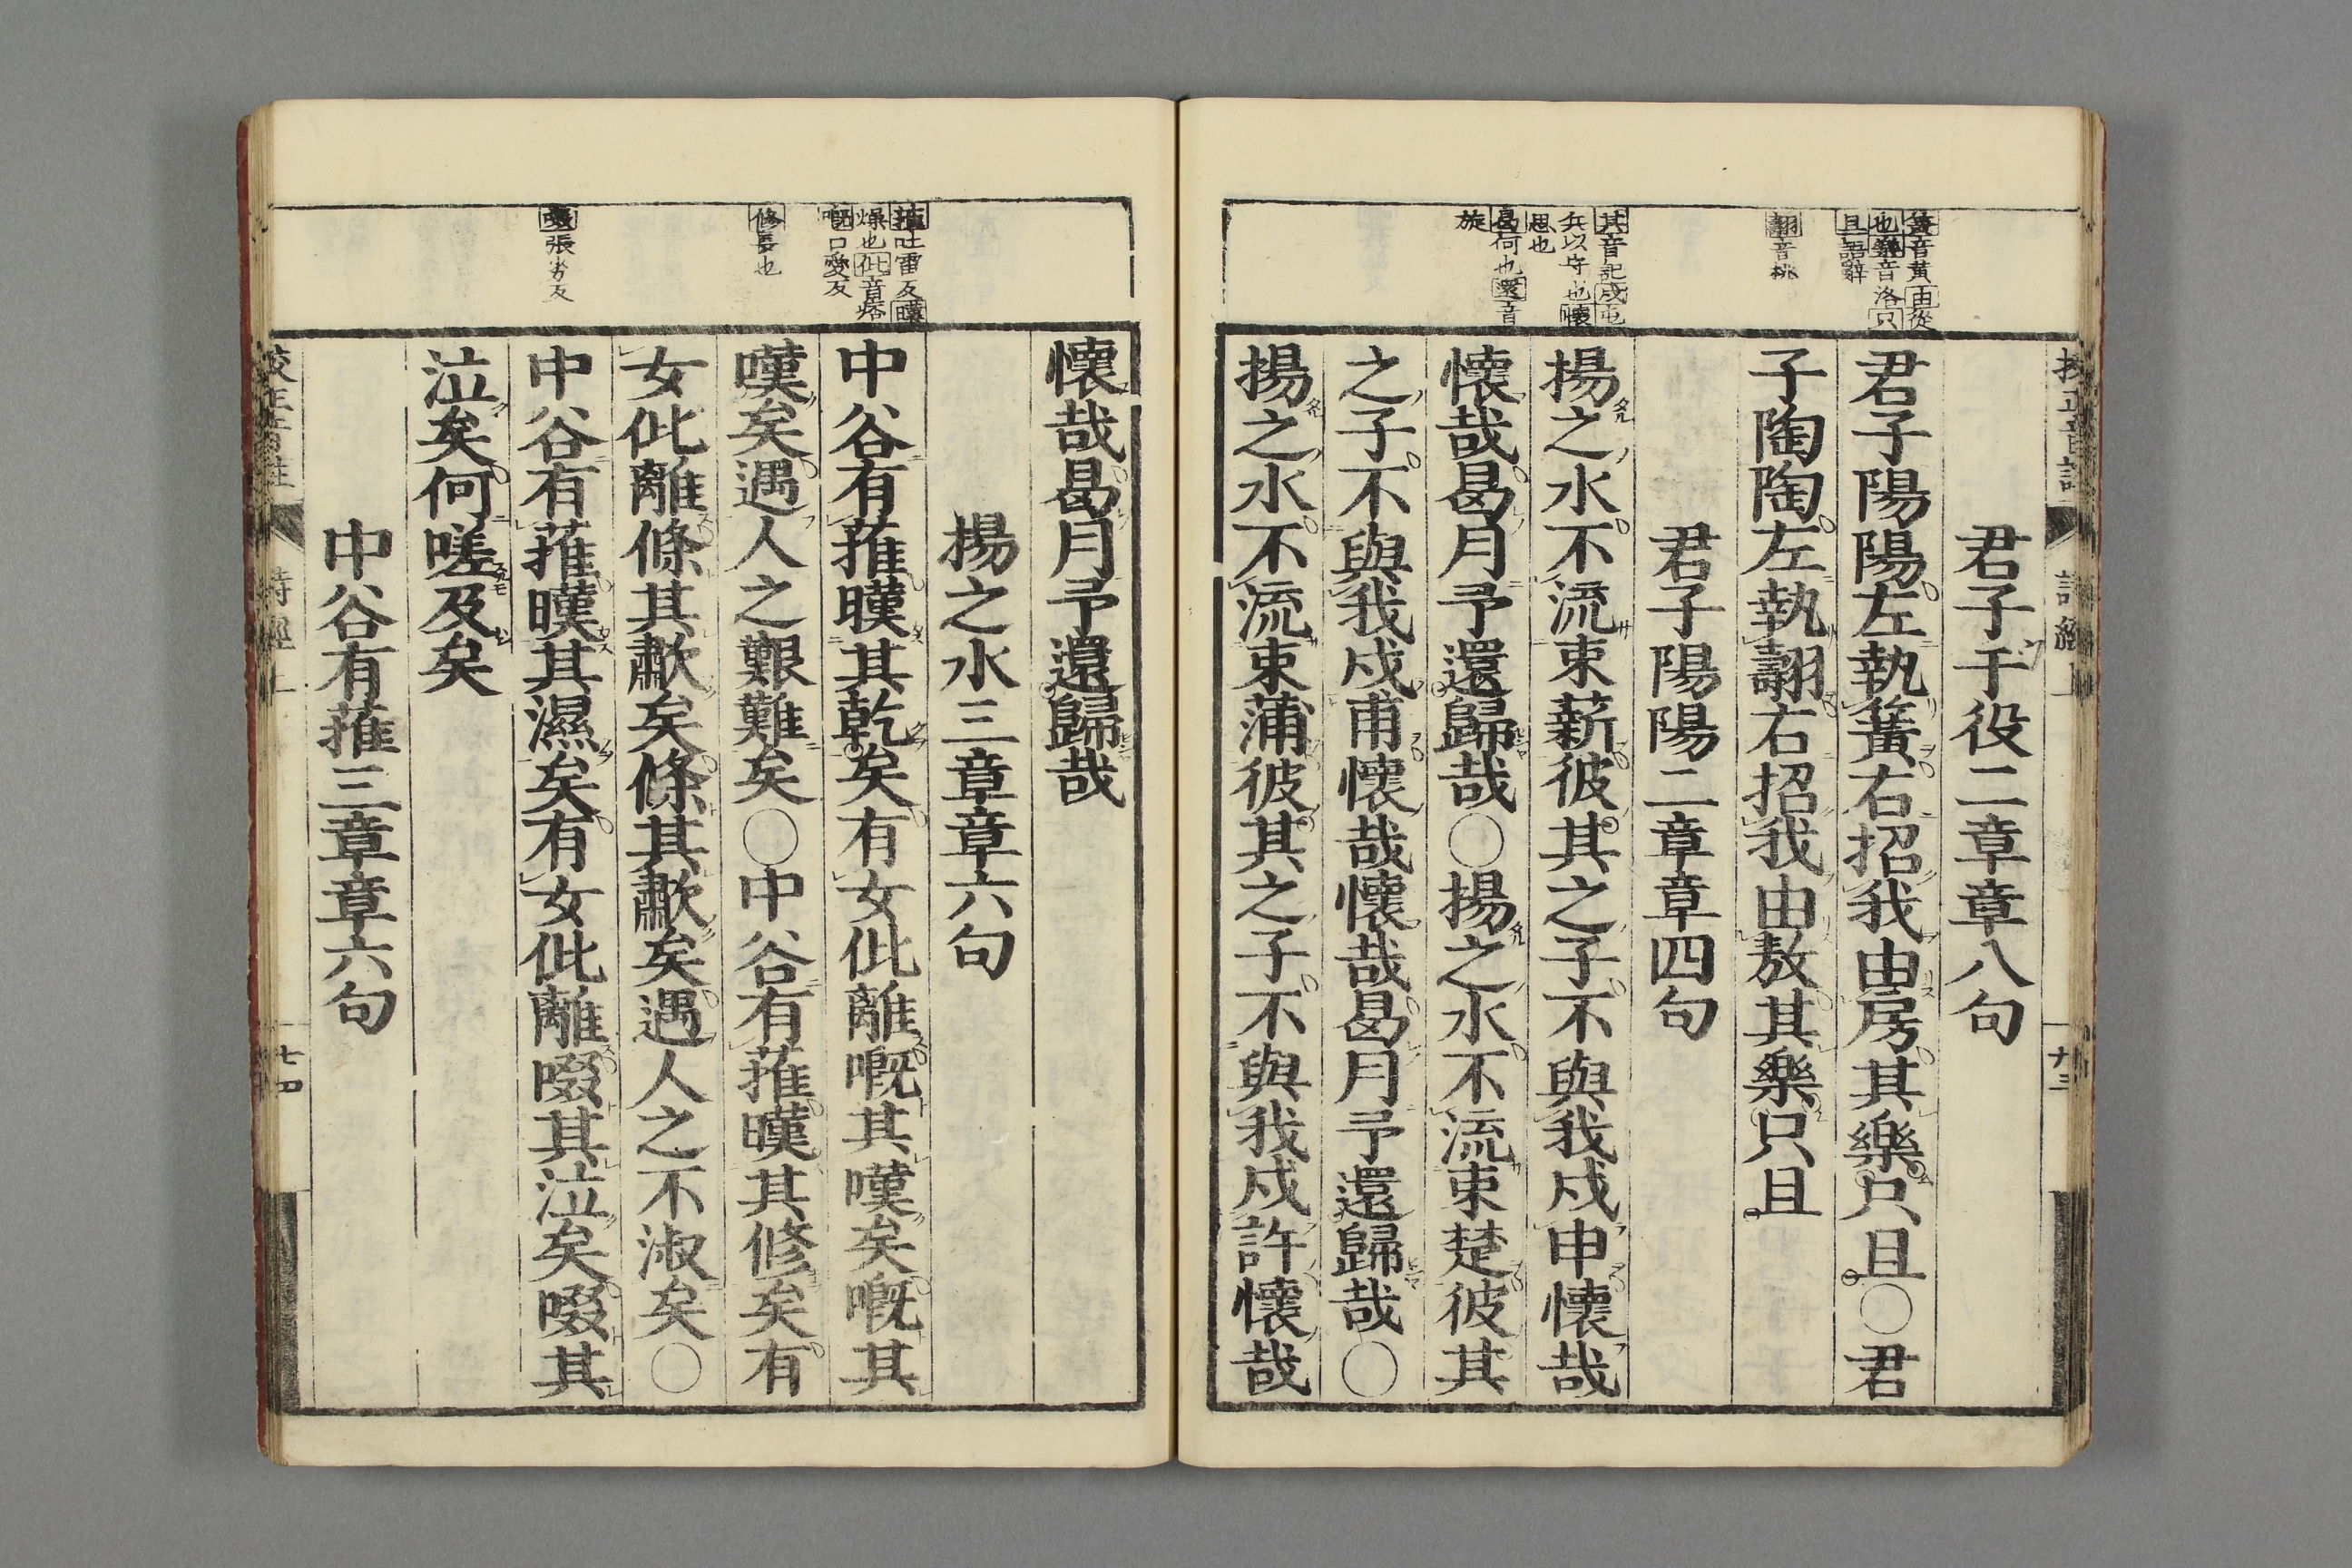 君子于役二章章八句
君子陽陽左執簧右招我由房其樂只且○君
子陶陶左執翿右招我由敖其樂只且
君子陽陽二章章四句
揚之水不流束薪彼其之子不與我戍申懷哉
懷哉曷月予還歸哉○揚之水不流束楚彼其
之子不與我戍甫懷哉懷哉曷月予還歸哉○
揚之水不流束蒲彼其之子不與我戍許懷哉
簧音黃由從
也樂音洛只
且語辭
翿音桃
其音記戍屯
兵以守也懷
思也
曷何也還音
旋
懷哉曷月予還歸哉
揚之水三章章六句
中谷有蓷暵其乾矣有女仳離嘅其嘆矣嘅其
嘆矣遇人之艱難矣○中谷有蓷暵其修矣有
女仳離條其歗矣條其歗矣遇人之不淑矣○
中谷有蓷暵其濕矣有女仳離啜其泣矣啜其
泣矣何嗟及矣
中谷有蓷三章章六句
蓷吐雷反暵
燥也仳音痞
嘅口愛反
修長也
啜張劣反